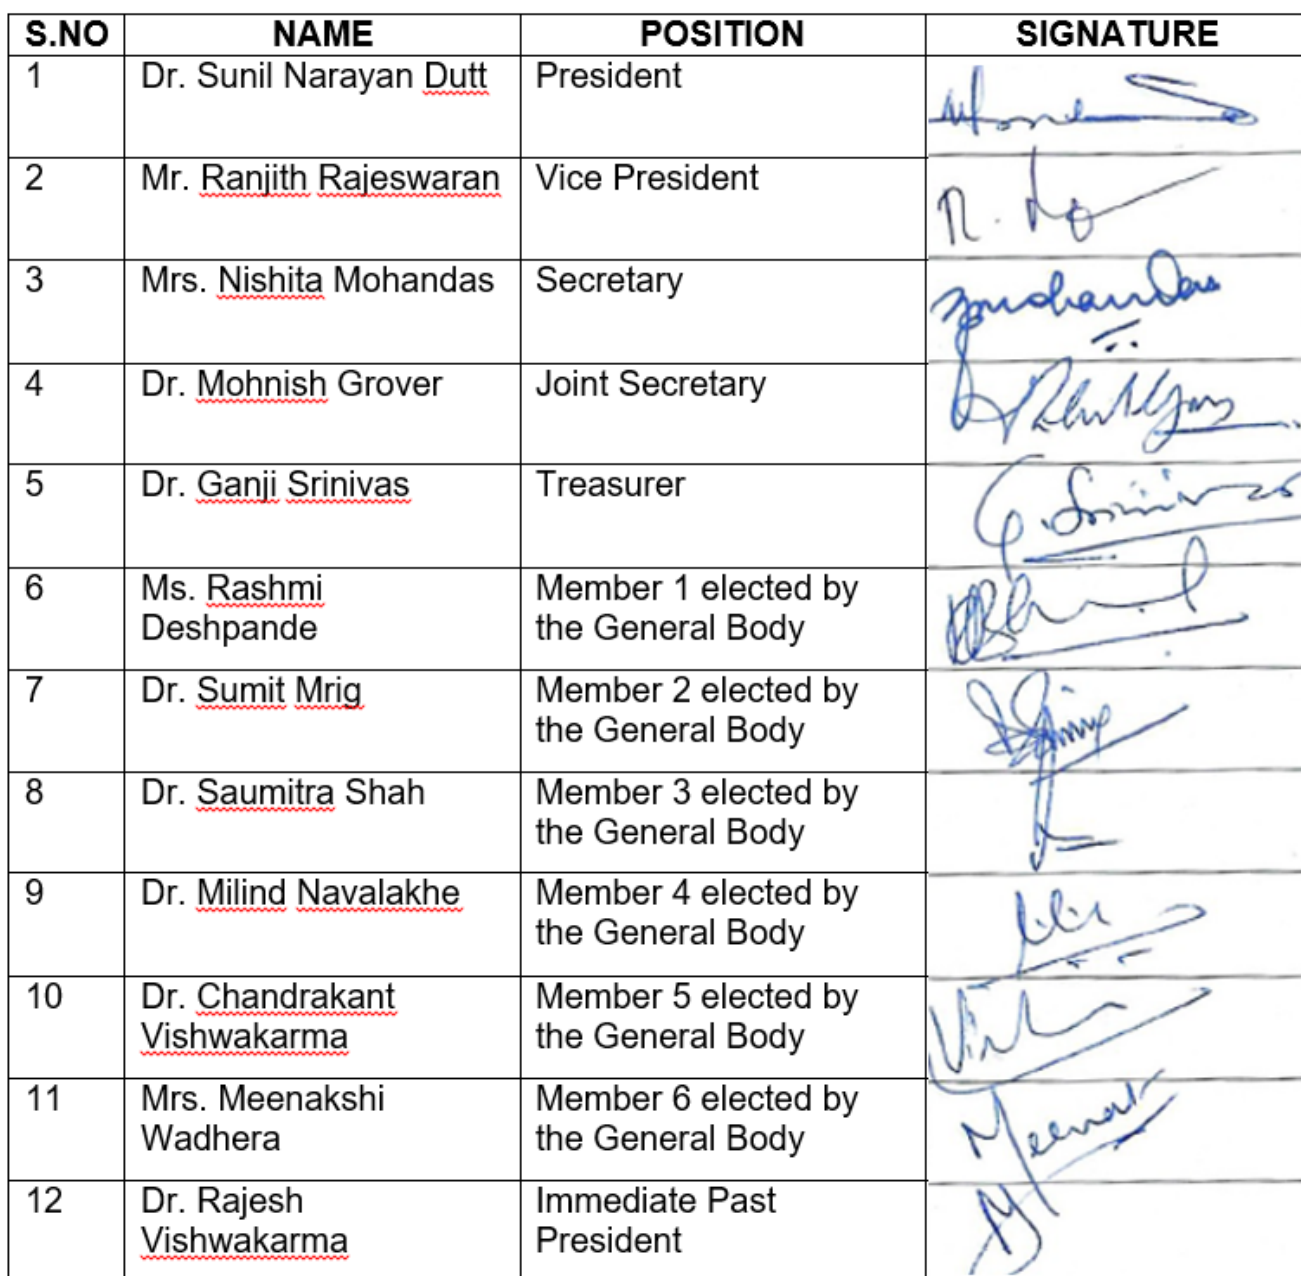 S.NO NAME POSITION SIGNATURE
1 Dr. Sunil Narayan Dutt President
2 Mr. Ranjith Rajeswaran Vice President
3 Mrs. Nishita Mohandas Secretary
4 Dr. Mohnish Grover Joint Secretary
5 Dr. Ganji Srinivas Treasurer G. Srinivas
6 Ms. Rashmi Member 1 elected by
Deshpande the General Body
7 Dr. Sumit Mrig Member 2 elected by
the General Body
8 Dr. Saumitra Shah Member 3 elected by
the General Body
9 Dr. Milind Navalakhe Member 4 elected by
the General Body
10 Dr. Chandrakant Member 5 elected by
Vishwakarma the General Body
11 Mrs. Meenakshi Member 6 elected by
Wadhera the General Body
12 Dr. Rajesh Immediate Past
Vishwakarma President